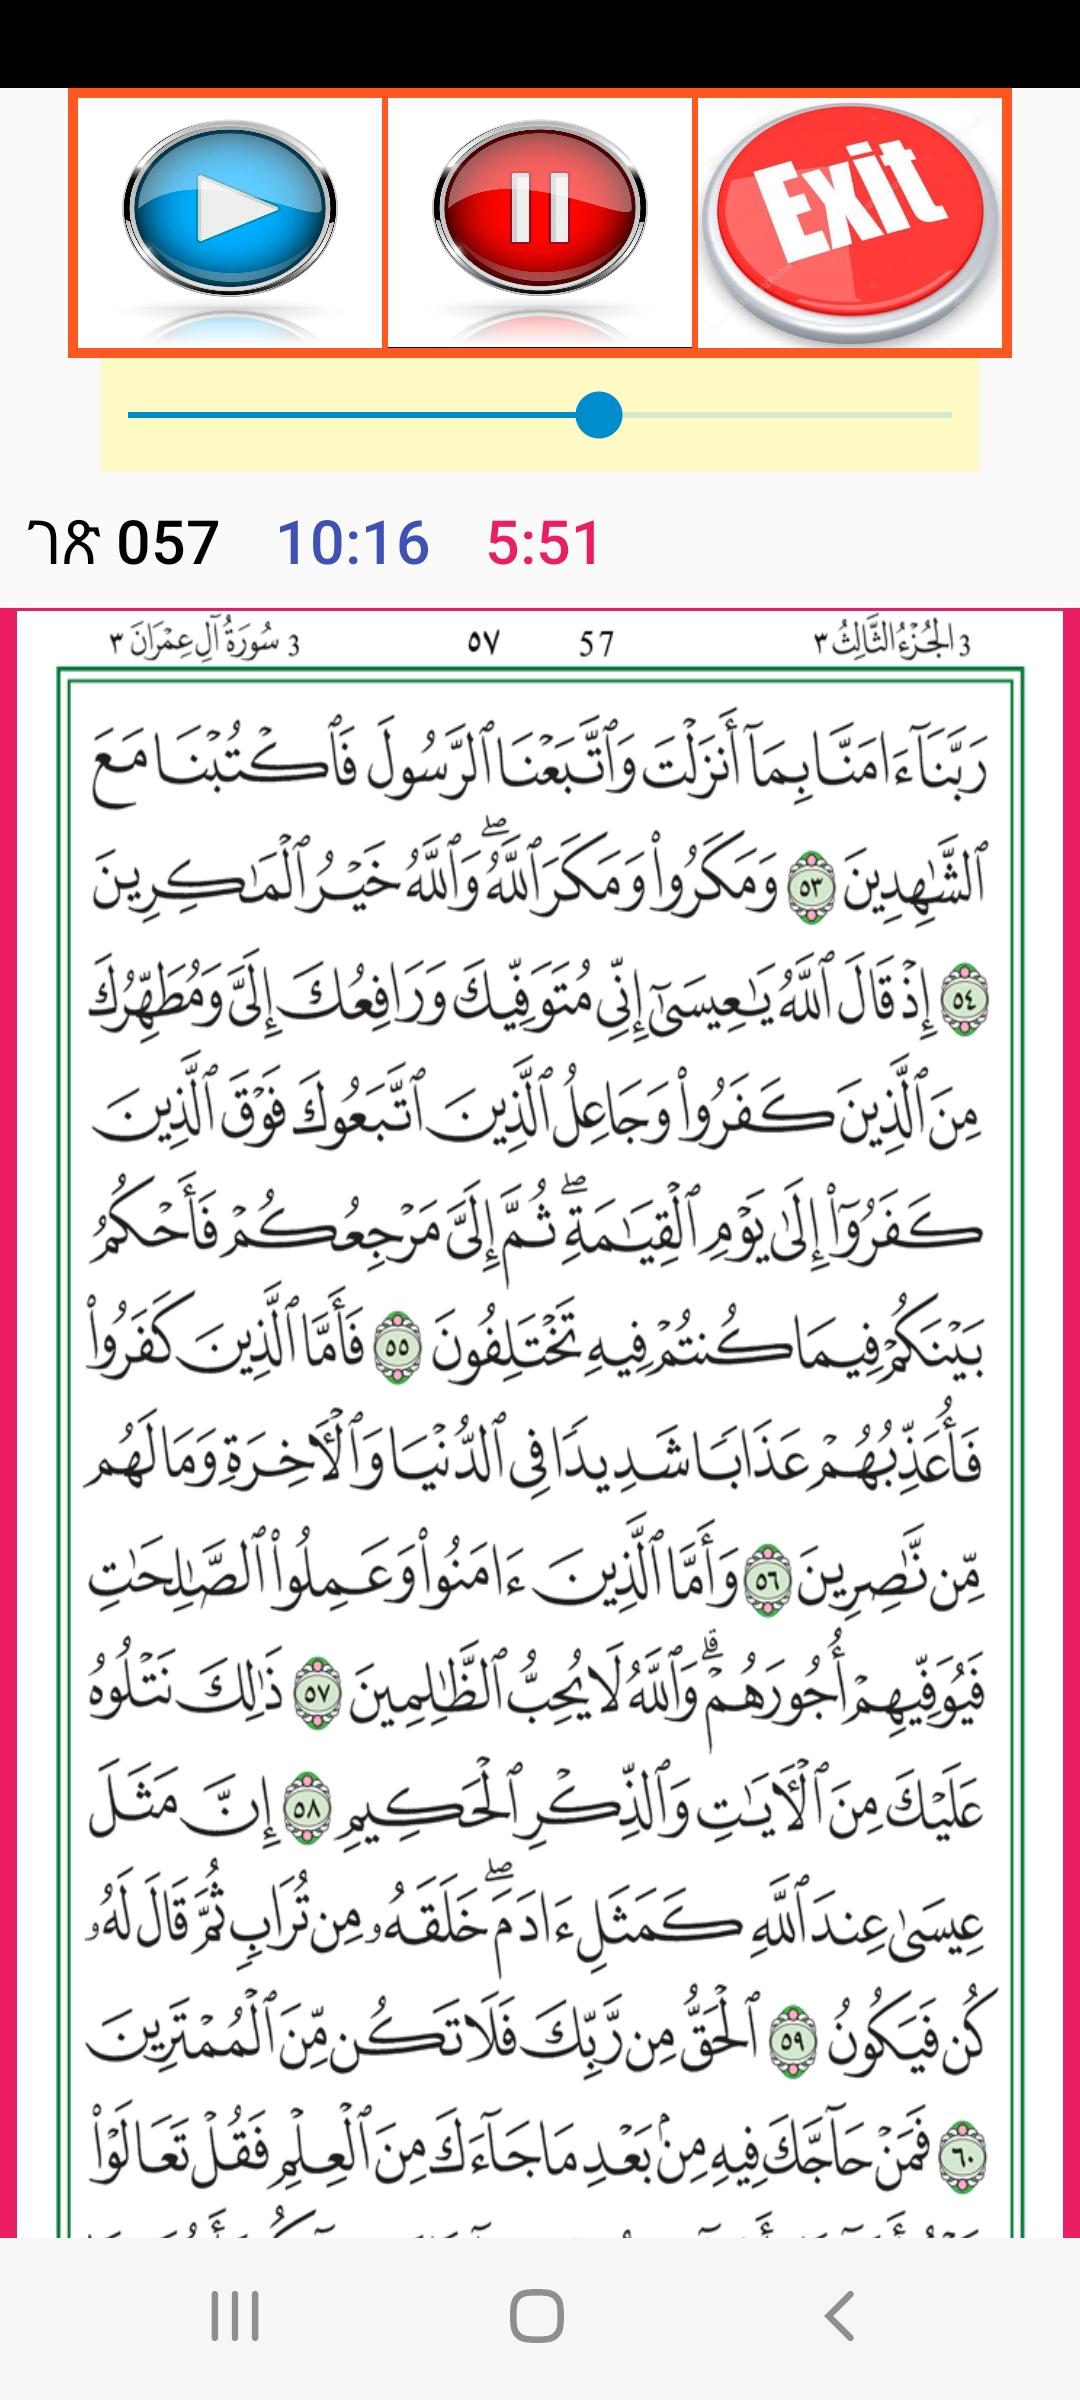 Exit
ገጽ 057 10:16 5:51
3 الجُزْءُ الثَّالِثُ ٣ 57 ٥٧ 3 سُورَةُ آلِ عِمْرَانَ ٣
رَبَّنَآ ءَامَنَّا بِمَآ أَنزَلْتَ وَٱتَّبَعْنَا ٱلرَّسُولَ فَٱكْتُبْنَا مَعَ
ٱلشَّٰهِدِينَ ٥٣ وَمَكَرُوا۟ وَمَكَرَ ٱللَّهُ ۖ وَٱللَّهُ خَيْرُ ٱلْمَٰكِرِينَ
٥٤ إِذْ قَالَ ٱللَّهُ يَٰعِيسَىٰٓ إِنِّى مُتَوَفِّيكَ وَرَافِعُكَ إِلَىَّ وَمُطَهِّرُكَ
مِنَ ٱلَّذِينَ كَفَرُوا۟ وَجَاعِلُ ٱلَّذِينَ ٱتَّبَعُوكَ فَوْقَ ٱلَّذِينَ
كَفَرُوٓا۟ إِلَىٰ يَوْمِ ٱلْقِيَٰمَةِ ۖ ثُمَّ إِلَىَّ مَرْجِعُكُمْ فَأَحْكُمُ
بَيْنَكُمْ فِيمَا كُنتُمْ فِيهِ تَخْتَلِفُونَ ٥٥ فَأَمَّا ٱلَّذِينَ كَفَرُوا۟
فَأُعَذِّبُهُمْ عَذَابًا شَدِيدًا فِى ٱلدُّنْيَا وَٱلْءَاخِرَةِ وَمَا لَهُم
مِّن نَّٰصِرِينَ ٥٦ وَأَمَّا ٱلَّذِينَ ءَامَنُوا۟ وَعَمِلُوا۟ ٱلصَّٰلِحَٰتِ
فَيُوَفِّيهِمْ أُجُورَهُمْ ۗ وَٱللَّهُ لَا يُحِبُّ ٱلظَّٰلِمِينَ ٥٧ ذَٰلِكَ نَتْلُوهُ
عَلَيْكَ مِنَ ٱلْءَايَٰتِ وَٱلذِّكْرِ ٱلْحَكِيمِ ٥٨ إِنَّ مَثَلَ
عِيسَىٰ عِندَ ٱللَّهِ كَمَثَلِ ءَادَمَ ۖ خَلَقَهُۥ مِن تُرَابٍ ثُمَّ قَالَ لَهُۥ
كُن فَيَكُونُ ٥٩ ٱلْحَقُّ مِن رَّبِّكَ فَلَا تَكُن مِّنَ ٱلْمُمْتَرِينَ
٦٠ فَمَنْ حَآجَّكَ فِيهِ مِنۢ بَعْدِ مَا جَآءَكَ مِنَ ٱلْعِلْمِ فَقُلْ تَعَالَوْا۟